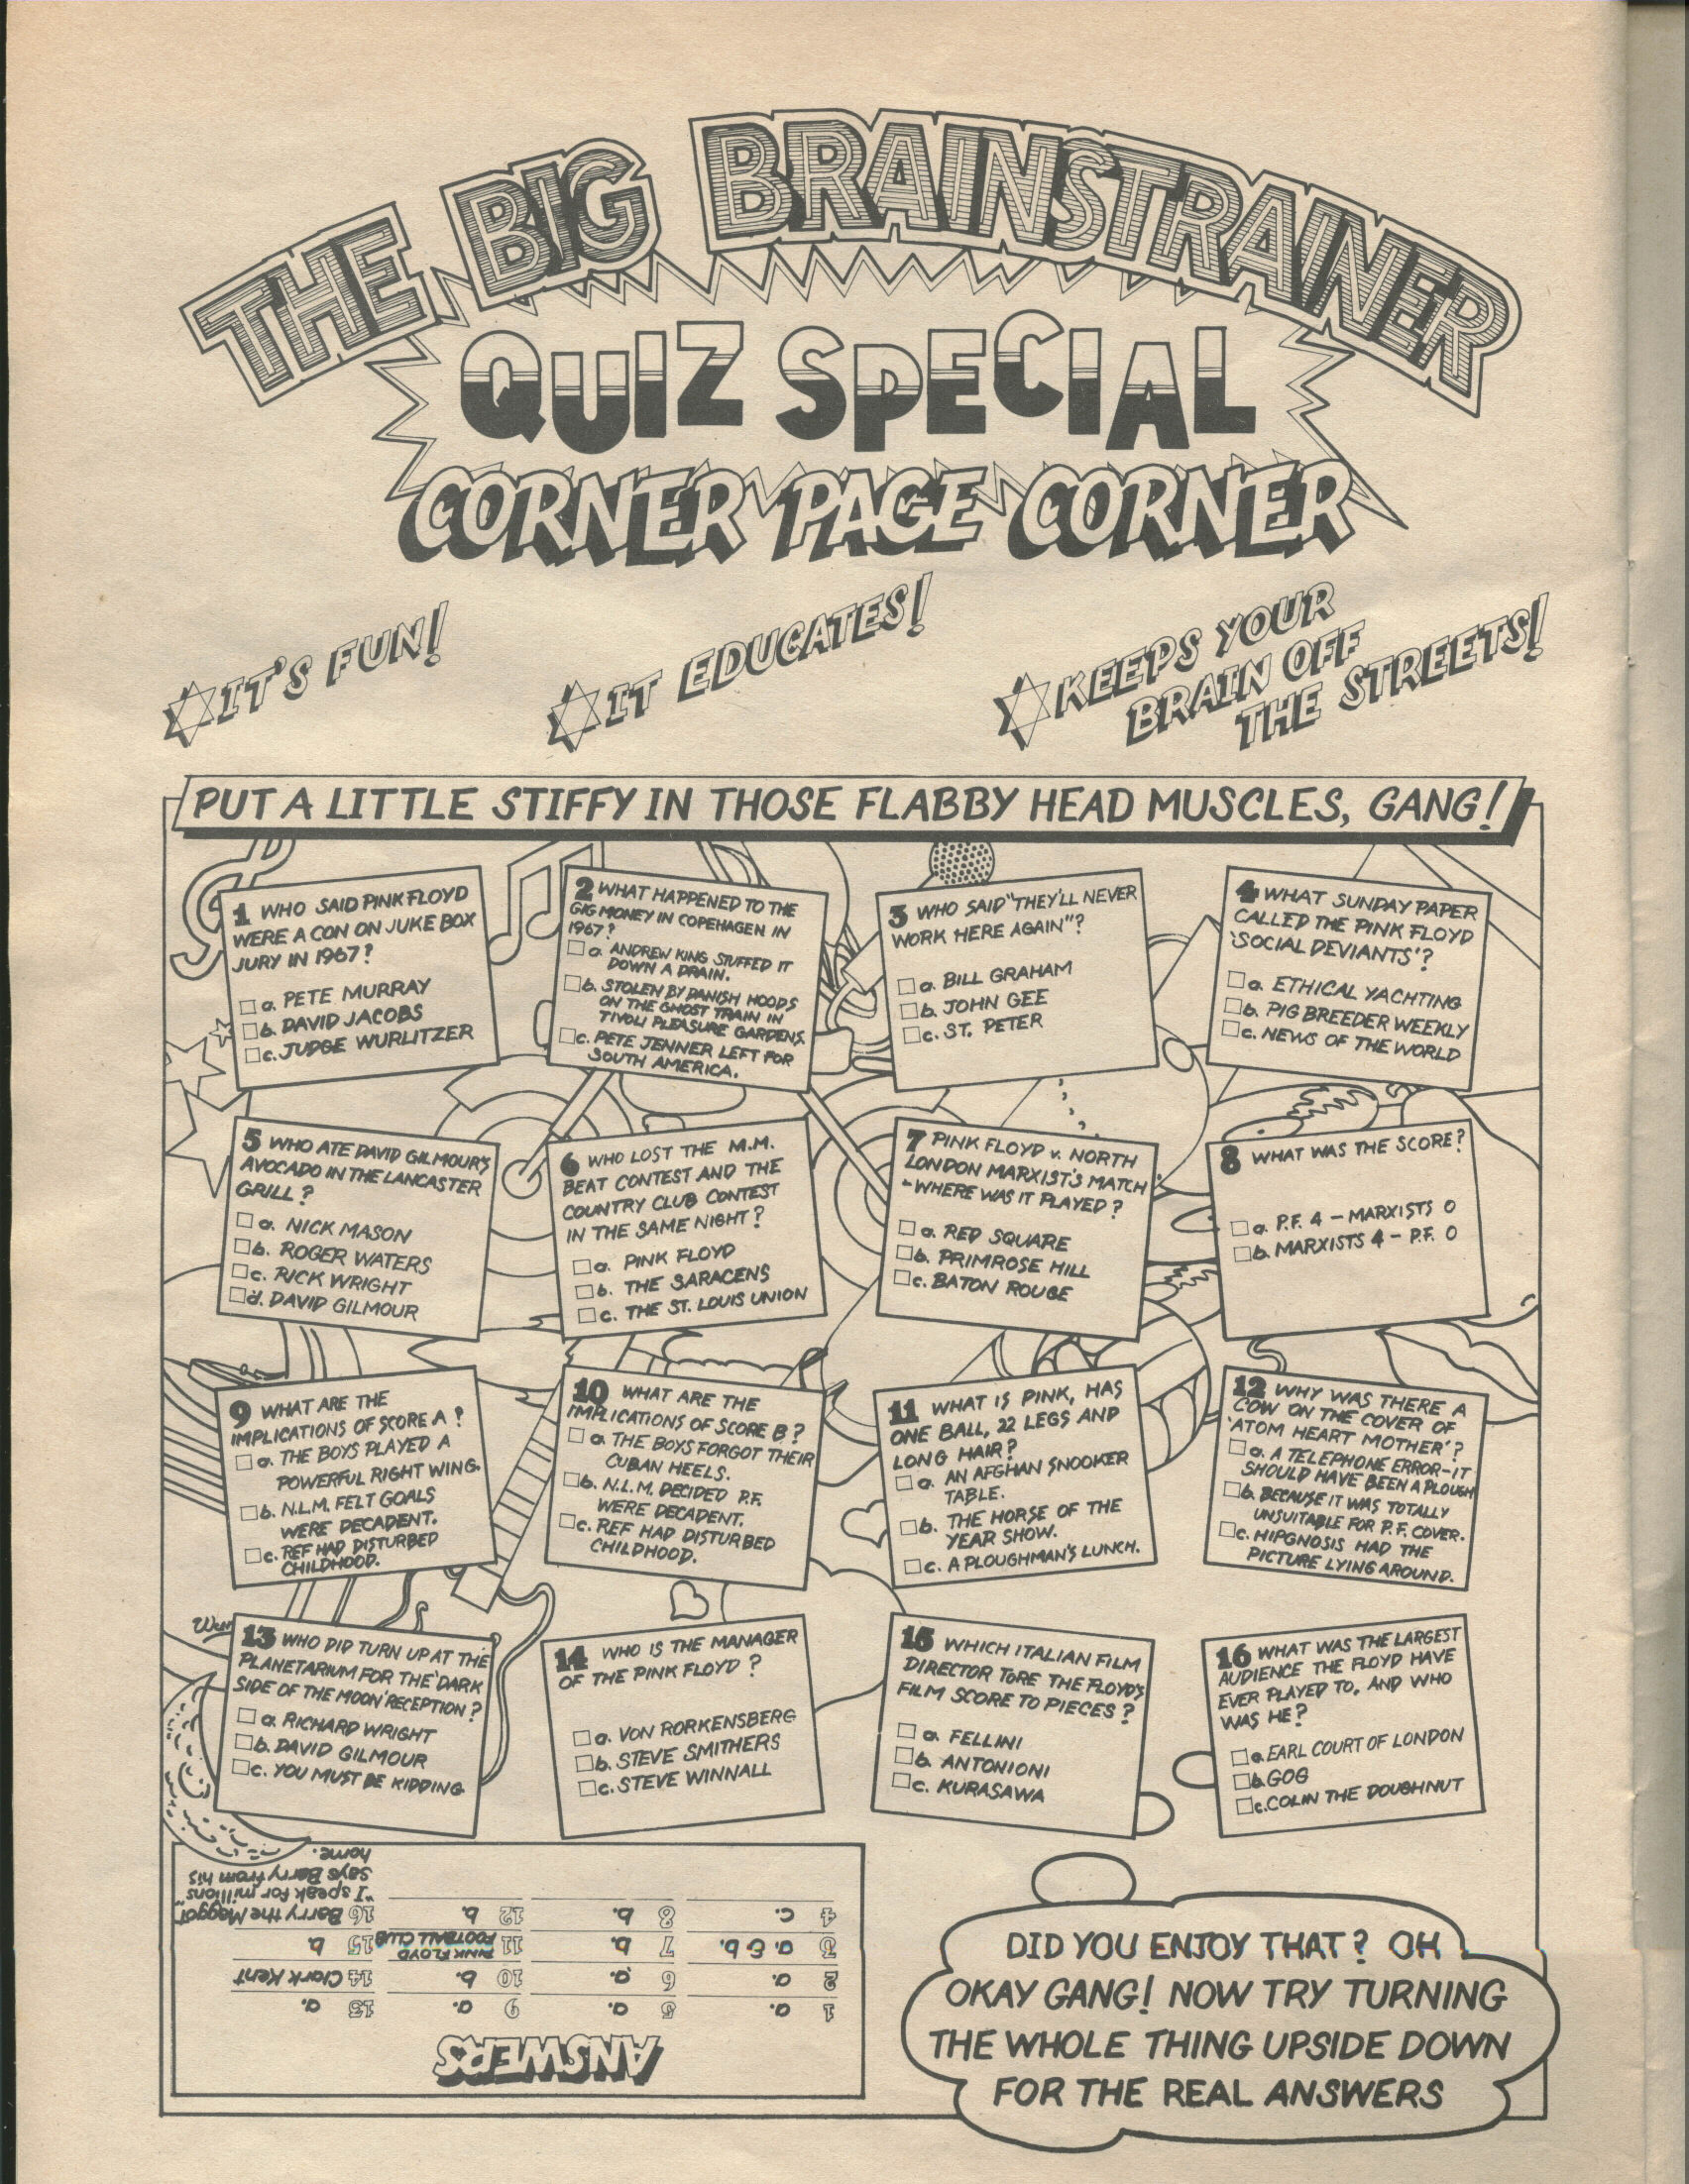 THE BIG BRAINSTRAINER
QUIZ SPECIAL
CORNER PAGE CORNER
IT'S FUN!
IT EDUCATES!
KEEPS YOUR
BRAIN OFF
THE STREETS!
PUT A LITTLE STIFFY IN THOSE FLABBY HEAD MUSCLES, GANG!
1 WHO SAID PINK FLOYD
WERE A CON ON JUKE BOX
JURY IN 1967?
a. PETE MURRAY
b. DAVID JACOBS
c. JUDGE WURLITZER
2 WHAT HAPPENED TO THE
GIG MONEY IN COPEHAGEN IN
1967?
a. ANDREW KING STUFFED IT
DOWN A DRAIN.
b. STOLEN BY DANISH HOODS
ON THE GHOST TRAIN IN
TIVOLI PLEASURE GARDENS.
c. PETE JENNER LEFT FOR
SOUTH AMERICA.
3 WHO SAID "THEY'LL NEVER
WORK HERE AGAIN"?
a. BILL GRAHAM
b. JOHN GEE
c. ST. PETER
4 WHAT SUNDAY PAPER
CALLED THE PINK FLOYD
'SOCIAL DEVIANTS'?
a. ETHICAL YACHTING
b. PIG BREEDER WEEKLY
c. NEWS OF THE WORLD
5 WHO ATE DAVID GILMOUR'S
AVOCADO IN THE LANCASTER
GRILL?
a. NICK MASON
b. ROGER WATERS
c. RICK WRIGHT
d. DAVID GILMOUR
6 WHO LOST THE M.M.
BEAT CONTEST AND THE
COUNTRY CLUB CONTEST
IN THE SAME NIGHT?
a. PINK FLOYD
b. THE SARACENS
c. THE ST. LOUIS UNION
7 PINK FLOYD v. NORTH
LONDON MARXIST'S MATCH
-WHERE WAS IT PLAYED?
a. RED SQUARE
b. PRIMROSE HILL
c. BATON ROUGE
8 WHAT WAS THE SCORE?
a. P.F. 4 - MARXISTS 0
b. MARXISTS 4 - P.F. 0
9 WHAT ARE THE
IMPLICATIONS OF SCORE A?
a. THE BOYS PLAYED A
POWERFUL RIGHT WING.
b. N.L.M. FELT GOALS
WERE DECADENT.
c. REF HAD DISTURBED
CHILDHOOD.
10 WHAT ARE THE
IMPLICATIONS OF SCORE B?
a. THE BOYS FORGOT THEIR
CUBAN HEELS.
b. N.L.M. DECIDED P.F.
WERE DECADENT.
c. REF HAD DISTURBED
CHILDHOOD.
11 WHAT IS PINK, HAS
ONE BALL, 22 LEGS AND
LONG HAIR?
a. AN AFGHAN SNOOKER
TABLE.
b. THE HORSE OF THE
YEAR SHOW.
c. A PLOUGHMAN'S LUNCH.
12 WHY WAS THERE A
COW ON THE COVER OF
'ATOM HEART MOTHER'?
a. A TELEPHONE ERROR-IT
SHOULD HAVE BEEN A PLOUGH
b. BECAUSE IT WAS TOTALLY
UNSUITABLE FOR P.F. COVER.
c. HIPGNOSIS HAD THE
PICTURE LYING AROUND.
13 WHO DID TURN UP AT THE
PLANETARIUM FOR THE 'DARK
SIDE OF THE MOON' RECEPTION?
a. RICHARD WRIGHT
b. DAVID GILMOUR
c. YOU MUST BE KIDDING
14 WHO IS THE MANAGER
OF THE PINK FLOYD?
a. VON RORKENSBERG
b. STEVE SMITHERS
c. STEVE WINNALL
15 WHICH ITALIAN FILM
DIRECTOR TORE THE FLOYD'S
FILM SCORE TO PIECES?
a. FELLINI
b. ANTONIONI
c. KURASAWA
16 WHAT WAS THE LARGEST
AUDIENCE THE FLOYD HAVE
EVER PLAYED TO, AND WHO
WAS HE?
a. EARL COURT OF LONDON
b. GOG
c. COLIN THE DOUGHNUT
ANSWERS
1 a.
2 a.
3 a. & b.
4 c.
5 a.
6 a.
7 b.
8 b.
9 a.
10 b.
11 PINK FLOYD
FOOTBALL CLUB
12 b.
13 a.
14 Clark Kent
15 b
16 Barry the Maggot
"I speak for millions"
says Barry from his
home.
DID YOU ENJOY THAT? OH
OKAY GANG! NOW TRY TURNING
THE WHOLE THING UPSIDE DOWN
FOR THE REAL ANSWERS